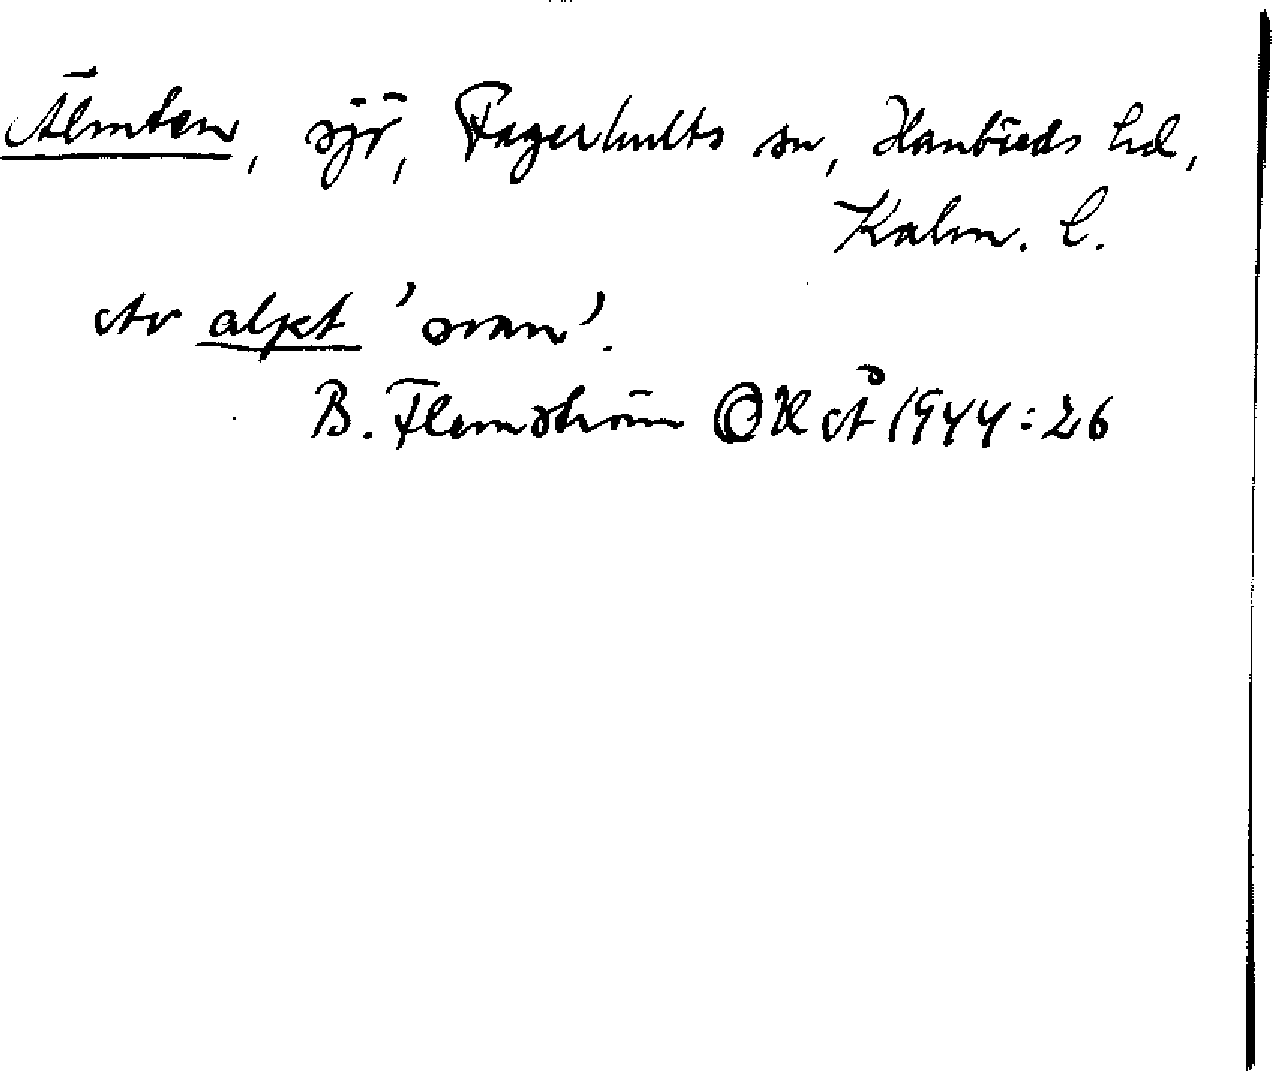 Älmten, sjö, Fagerhults sn, Handbörds hd,
Kalm. l.
Av alpt 'svan'.
B. Flemström OHÅ 1944:26